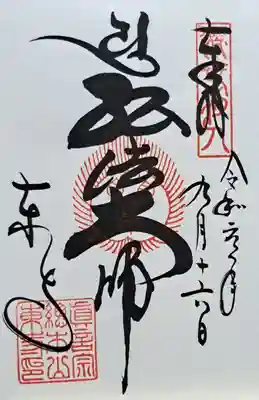 奉拝
令和元年
九月十六日
弘法大師
東寺
真言宗
総本山
東寺印